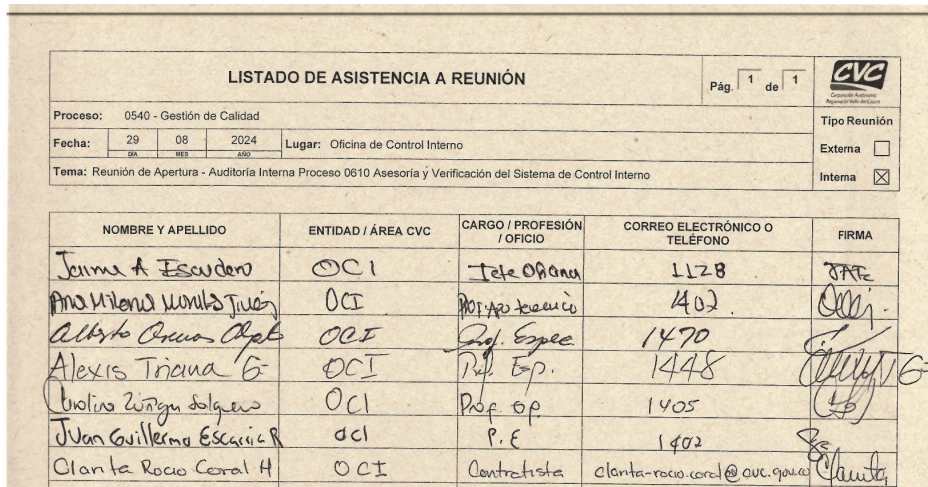 LISTADO DE ASISTENCIA A REUNIÓN
Pág. 1 de 1
CVC
Corporación Autónoma
Regional del Valle del Cauca
Proceso: 0540 - Gestión de Calidad
Tipo Reunión
Fecha: 29 08 2024 Lugar: Oficina de Control Interno
DÍA MES AÑO
Externa
Tema: Reunión de Apertura - Auditoría Interna Proceso 0610 Asesoría y Verificación del Sistema de Control Interno
Interna
NOMBRE Y APELLIDO ENTIDAD / ÁREA CVC CARGO / PROFESIÓN / OFICIO CORREO ELECTRÓNICO O TELÉFONO FIRMA
Jaime A Escudero OCI Jefe Oficina 1128
Ana Milena OCI 1402
Alberto OCI Prof. Espec 1470
Alexis Triana G OCI Prof. Esp. 1448
Carolina Zúñiga Salguero OCI Prof. 1405
Juan Guillermo R OCI P.E 1402
Clarita Rocio Coral H OCI Contratista clarita-rocio.coral@cvc.gov.co Clarita